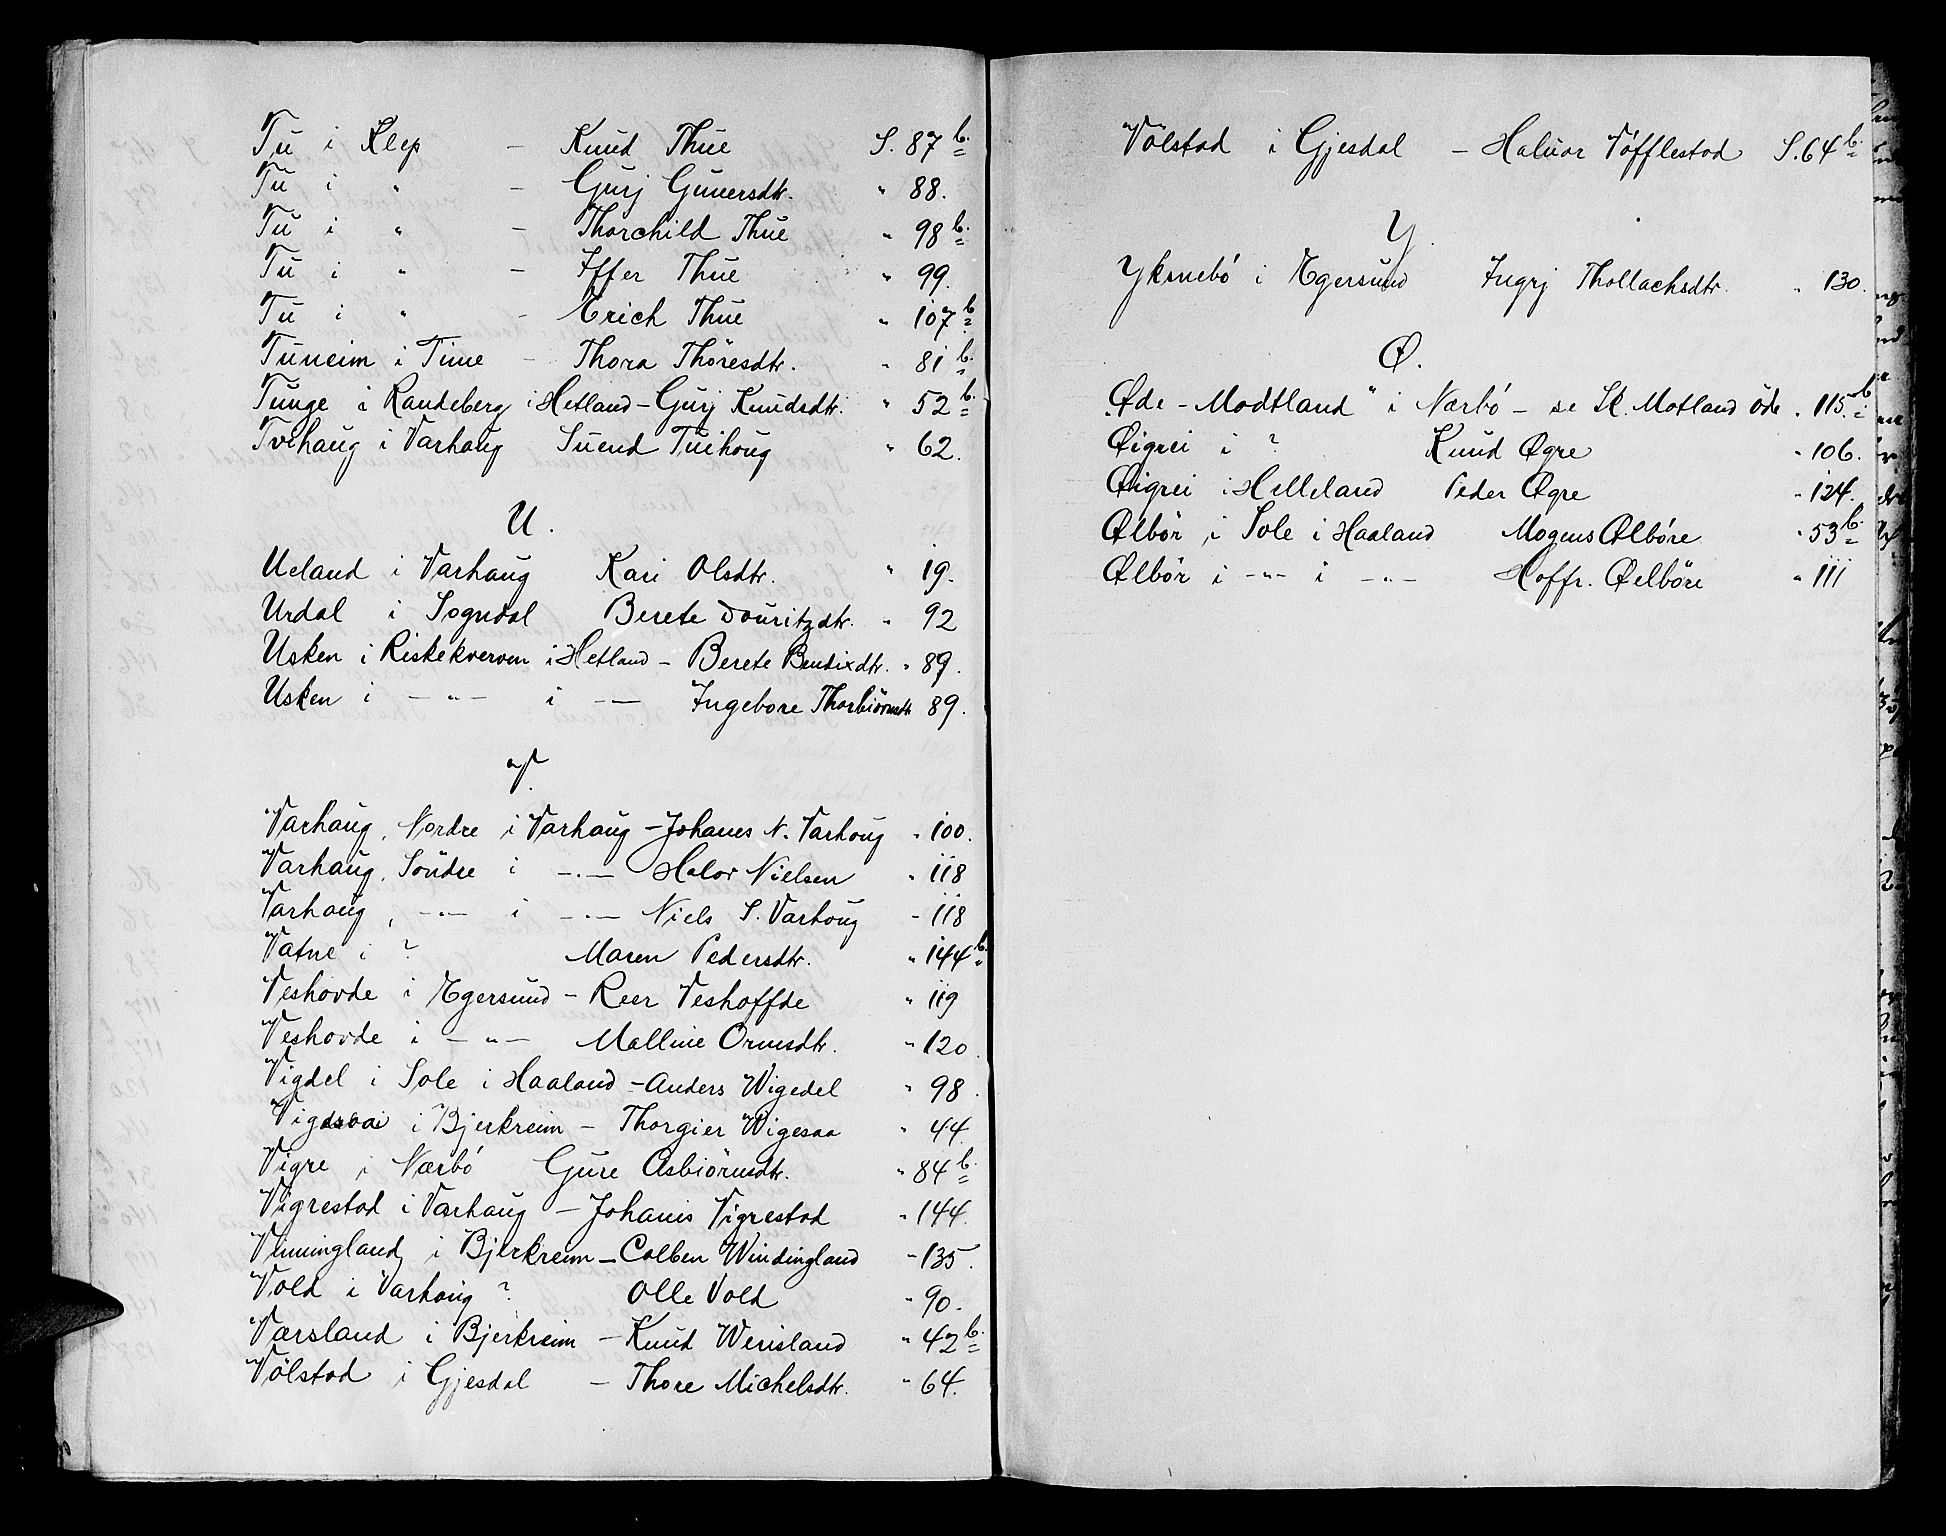 Tu i Klep - Knud Thue S. 87 b.
Tu i " - Gurj Gunersdtr. " 88.
Tu i " - Thorchild Thue " 98 b.
Tu i " - Iffer Thue " 99.
Tu i " - Erich Thue " 107 b
Tuneim i Time - Thora Thöresdtr. " 81 b.
Tunge i Randeberg i Hetland - Gurj Knudsdtr. " 52 b.
Tvehaug i Varhaug Suend Tuihoug " 62.
U.
Ueland i Varhaug Kari Olsdtr. " 19.
Urdal i Sogndal Berete Douritzdtr. " 92
Usken i Riskekverven i Hetland - Berete Bendixdtr. " 89.
Usken i - " - i - - Ingebore Thorbiörnsdtr 89.
V.
Varhaug, Nordre i Varhaug - Johanes N. Varhoug " 100.
Varhaug, Söndre i - " - Halor Nielsen " 118
Varhaug, - " - i - " - Niels S. Varhoug - 118
Vatne i ? Maren Pedersdtr. " 144 b.
Veshovde i Egersund - Reer Veshoffde " 119
Veshovde i - " - Malline Ormsdtr. " 120.
Vigdel i Sole i Haaland - Anders Wigedel " 98.
i Bjerkreim - Thorgier Wigesaa " 44.
Vigre i Nærbö Gure Asbiörnsdtr. " 84 b.
Vigrestad i Varhaug - Johanis Vigrestad " 144.
Vinningland i Bjerkreim - Colben Windingland " 135.
Vold i Varhaug ? Olle Vold " 90.
Værsland i Bjerkreim - Knud Werisland " 42 b.
Völstad i Gjesdal - Thore Michelsdtr. " 64.
Völstad i Gjesdal - Haluor Vöfflestad S. 64 b.
Y.
Yksnebö i Egersund Ingrj Thollachsdtr. " 130.
Ø.
"Øde - Modtland" i Nærbö - se St. Motland öde " 115. b
Øigrei i ? Knud Øgre " 106.
Øigrei i Helleland Peder Øgre " 124.
Ølbör i Sole i Haaland Mogens Ølböre " 53 b.
Ølbör i - " - i - " - Hoffr. Øelböre " 111